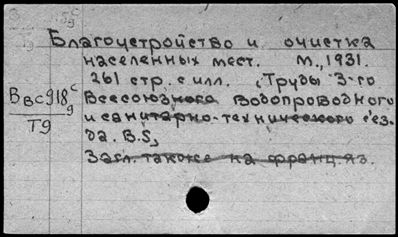 Благоустройство и очистка
населенных мест. М., 1931.
261 стр. с илл. „Труды 3-го
Всесоюзного водопроводного
и санитарно-технического с'ез-
да. В.5,
Загл. также на франц. яз.
Ввс918с9
Т9